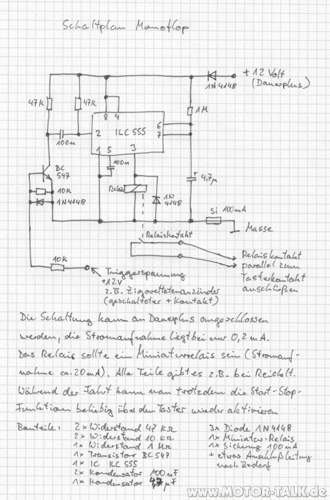 Schaltplan Monoflop
1N4148
+12 Volt
(Dauerplus)
47K
47K
8
4
1M
100n
2
ILC 555
6
7
BC
547
1
5
3
100n
4,7µ
10K
1N4148
Relais
1N
4148
Si
100mA
Masse
Relaiskontakt
10K
Relaiskontakt
parallel zum
Tasterkontakt
anschließen
Triggerspannung
+12V
z.B. Zigarettenanzünder
(geschalteter + Kontakt)
Die Schaltung kann an Dauerplus angeschlossen
werden, die Stromaufnahme liegt bei nur 0,2 mA.
Das Relais sollte ein Miniaturrelais sein (Stromauf-
nahme ca. 20mA). Alle Teile gibt es z.B. bei Reichelt.
Während der Fahrt kann man trotzdem die Start-Stop-
Funktion beliebig über den Taster wieder aktivieren
Bauteile:
2x Widerstand 47 KΩ
2x Widerstand 10 KΩ
1x Widerstand 1 MΩ
1x Transistor BC 547
1x IC ILC 555
2x Kondensator 100 nF
1x Kondensator 4,7 µF
3x Diode 1N4148
1x Miniatur-Relais
1x Sicherung 100mA
+ etwas Anschlußleitung
nach Bedarf
© www.MOTOR-TALK.de